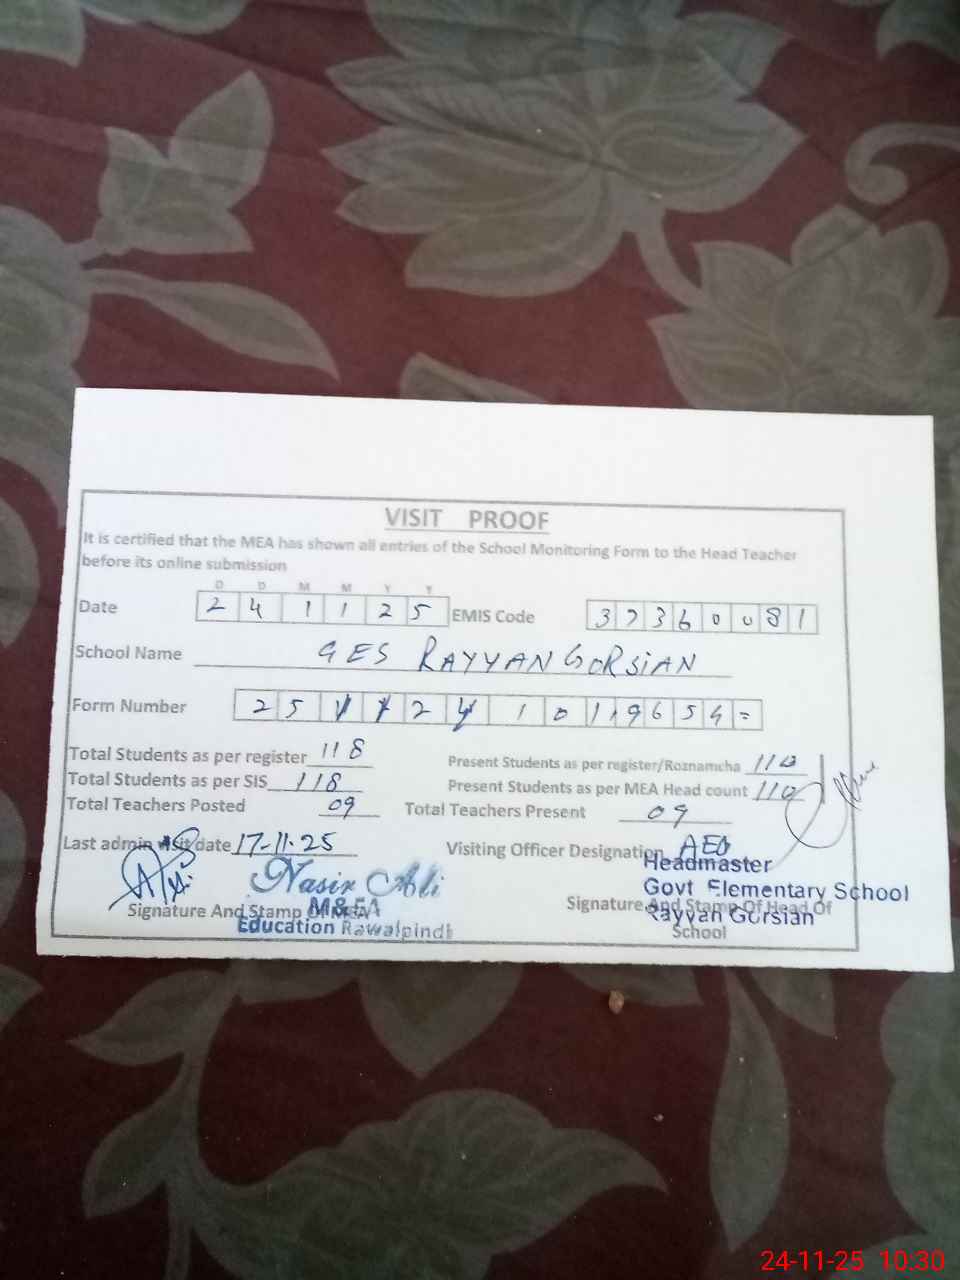 VISIT PROOF
It is certified that the MEA has shown all entries of the School Monitoring Form to the Head Teacher
before its online submission
D D M M Y Y
Date 2 4 1 1 2 5 EMIS Code 3 7 3 6 0 0 8 1
School Name GES RAYYAN GORSIAN
Form Number 2 5 1 1 2 4 1 0 1 9 6 5 4 =
Total Students as per register 118 Present Students as per register/Roznamcha 110
Total Students as per SIS 118 Present Students as per MEA Head count 110
Total Teachers Posted 09 Total Teachers Present 09
Last admin visit date 17-11-25 Visiting Officer Designation AEO
Nasir Ali
M&EA
Education Rawalpindi
Signature And Stamp Of MEA
Headmaster
Govt Elementary School
Rayyan Gorsian
Signature And Stamp Of Head Of
School
24-11-25 10:30